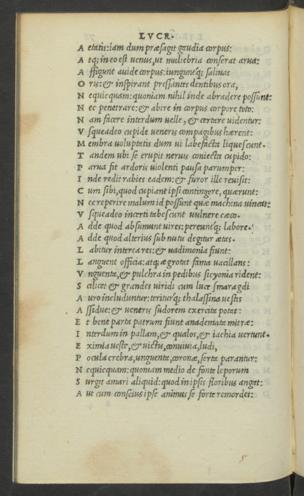 LVCR.
A etatis: iam dum præsagit gaudia corpus:
A tq; in eo est venus, ut muliebria conserat arua:
A ffigunt auide corpus: iunguntq; saliuas
O ris: & inspirant pressantes dentibus ora,
N equicquam: quoniam nihil inde abradere possunt:
N ec penetrare: & abire in corpus corpore toto:
N am facere interdum uelle, & certare uidentur:
V squeadeo cupide ueneris compagibus hærent:
M embra uoluptatis dum ui labefacta liquescunt.
T andem ubi se erupit neruis coniecta cupido:
P arua fit ardoris uiolenti pausa parumper:
I nde redit rabies eadem: & furor ille reuisit:
C um sibi, quod cupiant ipsi contingere, quærunt:
N ec reperire malum id possunt quæ machina uincat:
V squeadeo incerti tabescunt uulnere cæco.
A dde quod absumunt uires: pereuntq; labore.
A dde quod alterius sub nutu degitur ætas.
L abitur interea res: & uadimonia fiunt:
L anguent officia: atq; ægrotat fama uacillans:
V nguenta, & pulchra in pedibus sicyonia rident:
S cilicet & grandes uiridi cum luce smaragdi
A uro includuntur: teriturq; thalassina uestis
A ssidue: & ueneris sudorem exercita potat:
E t bene parta patrum fiunt anademata mitræ:
I nterdum in pallam, &
E ximia ueste, & uictu, conuiuia, ludi,
P ocula crebra, unguenta, coronæ, serta parantur:
N equicquam: quoniam medio de fonte leporum
S urgit amari aliquid: quod in ipsis floribus angit:
A ut cum conscius ipse animus se forte remordet: